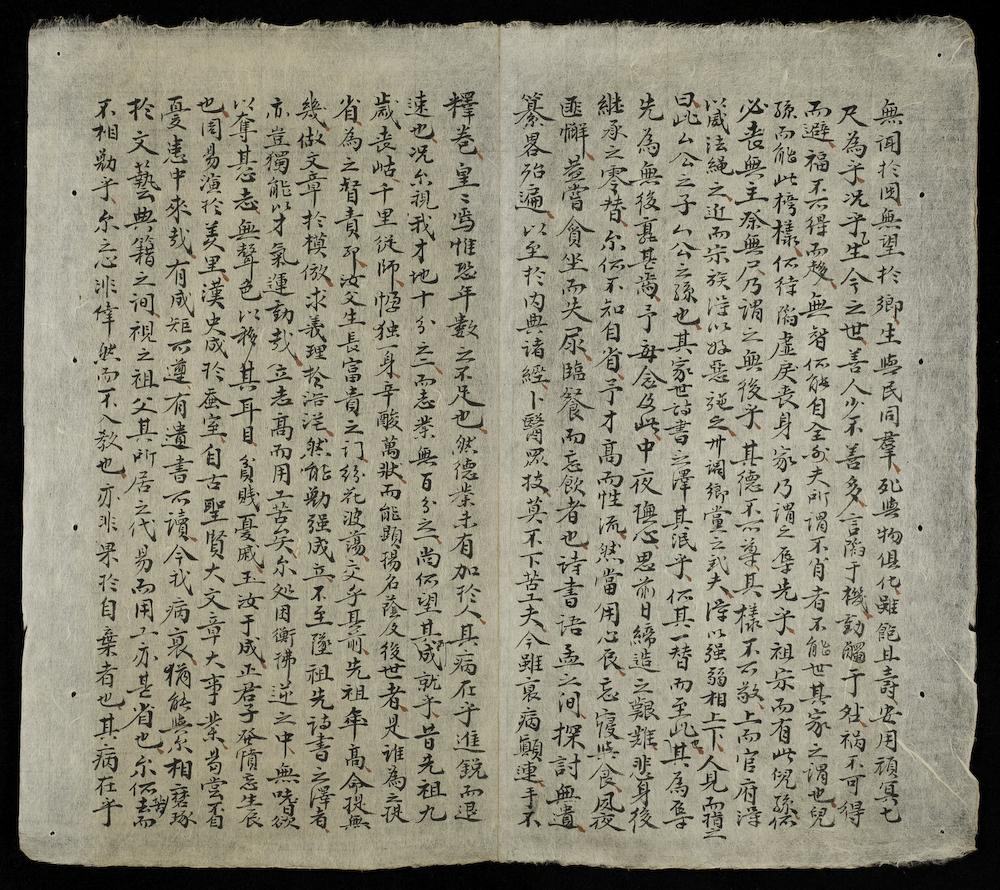 無聞於國無望於鄉生與民同羣死與物俱化雖飽且壽安用頑冥七
尺為乎况乎生今之世善人少不善多言陷于機動觸于祸不可得
而避福不可得而趍無智不能自全夫所謂不肖者不能世其家之謂也兒
孫而能此樣不待陷虛戾喪身家乃謂之辱先乎祖宗而有此兒孫
必喪無主祭無尸乃謂之無後乎其德不可尊其樣不可敬上而官府得
以威法繩之近而宗族得以好惡施之州閭鄉黨之武夫得以强弱相上下人見而指之
曰此厶公之子厶公之孫也其家世詩書之澤其泯乎不其一替而至此其為辱
先為無後甚焉予每念及此中夜撫心思前日締造之艱難非身後
継承之零替尔不知自省予才高而性流然當用心辰忘寢與食夙夜
匪懈甞貪坐而失尿臨餐而忘飲者也詩書語孟之间探討無遺
纂畧殆遍以至於内典諸經卜醫眾技莫不下苦工夫今雖衰病顛連手不
釋卷皇〻焉惟恐年數之不足也然德業未有加於人其病在乎進鋭而退
速也况尔視我才地十分之二而志業無百分之尚何望其成就乎昔先祖九
歲喪岵千里従師惸独一身辛酸萬狀而能顕揚名蔭及後世者是誰為之提
省為之督責耶汝父生長富貴之门紛花波蕩交乎其前先祖年高命提無
幾做文章於模倣求義理於浩洋然能勤强成立不至墜祖先詩書之澤者
亦豈獨能以才氣運動哉立志髙而用工苦矣尔処困衡拂逆之中無嗜欲
以奪其志無聲色以移其耳目貧賤憂戚玉汝于成正君子発憤忘生辰
也周易演於羑里漢史成於蚕室自古聖賢大文章大事業曷嘗不自
憂患中來哉有成矩可遵有遺書可讀今我病衰猶能與尔相磨琢
於文藝典籍之间視之祖父其所居之代易而用工亦甚省也尔去而
不相勤乎尔之心非倖然而不入教也亦非果於自棄者也其病在乎